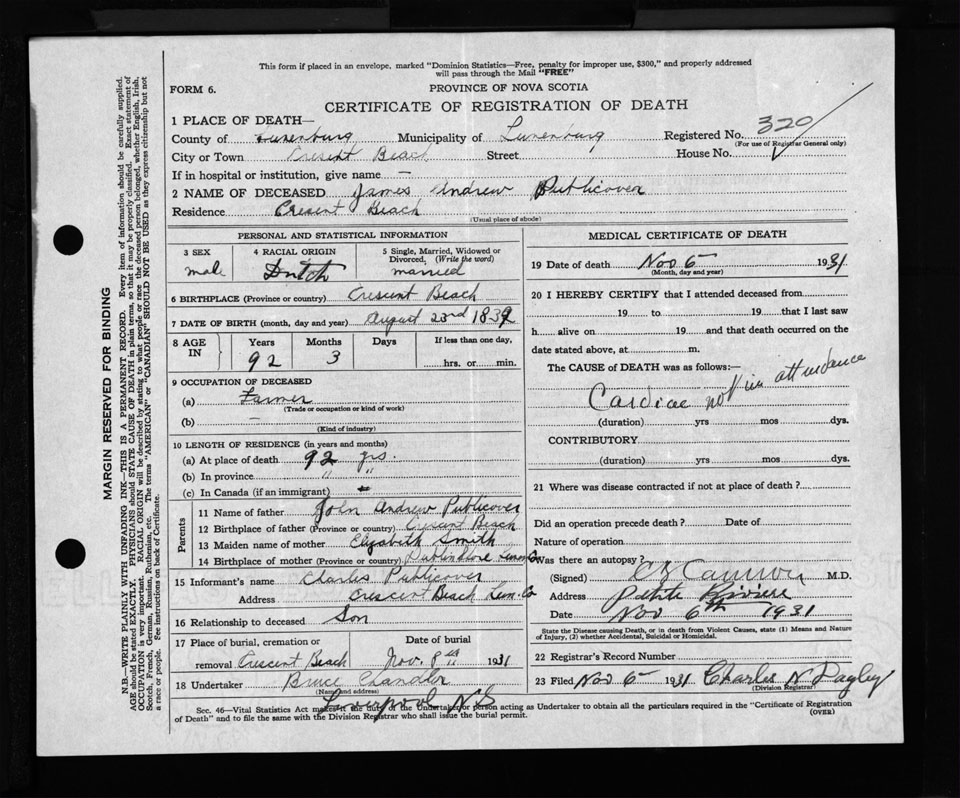 This form if placed in an envelope, marked "Dominion Statistics—Free, penalty for improper use, $300," and properly addressed
will pass through the Mail "FREE"
FORM 6.
PROVINCE OF NOVA SCOTIA
CERTIFICATE OF REGISTRATION OF DEATH
1 PLACE OF DEATH—
County of Lunenburg Municipality of Lunenburg Registered No. 320
(For use of Registrar General only)
City or Town Cresent Beach Street House No.
If in hospital or institution, give name —
2 NAME OF DECEASED James Andrew Publicover
Residence Cresent Beach
(Usual place of abode)
PERSONAL AND STATISTICAL INFORMATION
3 SEX
male
4 RACIAL ORIGIN
Dutch
5 Single, Married, Widowed or Divorced. (Write the word)
married
6 BIRTHPLACE (Province or country) Crescent Beach
7 DATE OF BIRTH (month, day and year) August 23rd 1839
8 AGE IN
Years Months Days If less than one day,
92 3 hrs. or min.
9 OCCUPATION OF DECEASED
(a) Farmer
(Trade or occupation or kind of work)
(b) —
(Kind of industry)
10 LENGTH OF RESIDENCE (in years and months)
(a) At place of death 92 yrs.
(b) In province " "
(c) In Canada (if an immigrant)
Parents
11 Name of father John Andrew Publicover
12 Birthplace of father (Province or country) Cresent Beach
13 Maiden name of mother Elizabeth Smith
14 Birthplace of mother (Province or country)
15 Informant's name Charles Publicover
Address Crescent Beach Lun. Co
16 Relationship to deceased Son
17 Place of burial, cremation or removal Crescent Beach
Date of burial
Nov. 8th 1931
18 Undertaker Bruce Chandler
(Name and address)
Liverpool N S
MEDICAL CERTIFICATE OF DEATH
19 Date of death Nov 6 1931
(Month, day and year)
20 I HEREBY CERTIFY that I attended deceased from
19 to 19 that I last saw
h alive on 19 and that death occurred on
date stated above, at m.
The CAUSE of DEATH was as follows:—
Cardiac not in attendance
(duration) yrs mos dys.
CONTRIBUTORY
(duration) yrs mos dys.
21 Where was disease contracted if not at place of death?
Did an operation precede death? Date of
Nature of operation
Was there an autopsy?
(Signed) M.D.
Address Petite Riviere
Date Nov 6th 1931
State the Disease causing Death, or in death from Violent Causes, state (1) Means and
Nature of Injury, (2) whether Accidental, Suicidal or Homicidal.
22 Registrar's Record Number
23 Filed Nov 6 1931 Charles N Dagley
(Division Registrar)
Sec. 46—Vital Statistics Act makes it the duty of the Undertaker or person acting as Undertaker to obtain all the particulars required in the "Certificate of Registration
of Death" and to file the same with the Division Registrar who shall issue the burial permit.
(OVER)
MARGIN RESERVED FOR BINDING
N.B.—WRITE PLAINLY WITH UNFADING INK—THIS IS A PERMANENT RECORD. Every item of information should be carefully supplied.
AGE should be stated EXACTLY. PHYSICIANS should STATE CAUSE OF DEATH in plain terms, so that it may be properly classified. Exact statement of
OCCUPATION is very important. RACIAL ORIGIN will be described by stating to what people or race the deceased person belonged, whether English, Irish,
Scotch, French, German, Russian, Ruthenian, etc. The terms "AMERICAN" or "CANADIAN" SHOULD NOT BE USED as they express citizenship but not
a race or people. See instructions on back of Certificate.